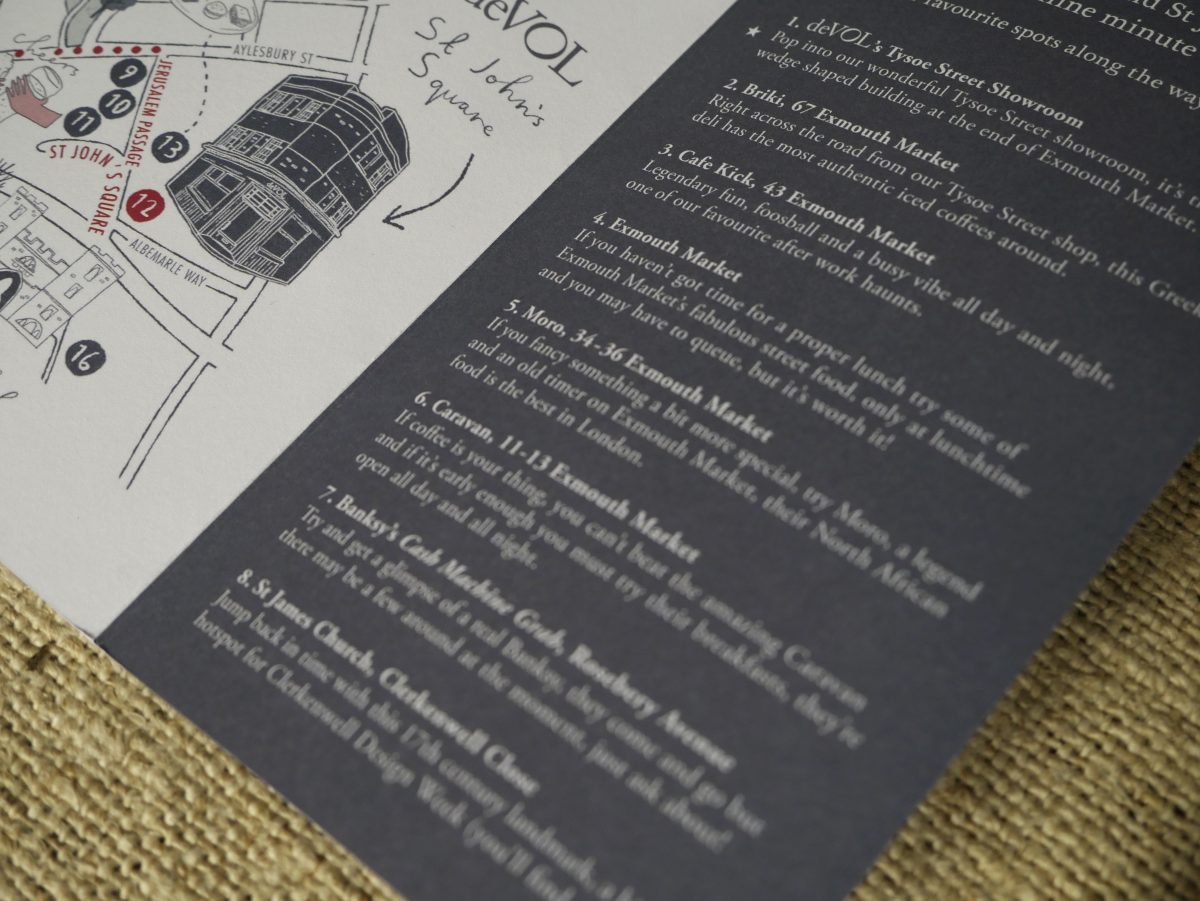 cheers
AYLESBURY ST
9
10
11
13
JERUSALEM PASSAGE
ST JOHN'S SQUARE
12
ALBEMARLE WAY
16
deVOL
St John's
Square
deVOL
St J
nine minute
favourite spots along the wa
1. deVOL's Tysoe Street Showroom
★ Pop into our wonderful Tysoe Street showroom, it's
wedge shaped building at the end of Exmouth Market.
2. Briki, 67 Exmouth Market
Right across the road from our Tysoe Street shop, this Greek
deli has the most authentic iced coffees around.
3. Cafe Kick, 43 Exmouth Market
Legendary fun, foosball and a busy vibe all day and night,
one of our favourite after work haunts.
4. Exmouth Market
If you haven't got time for a proper lunch, try some of
Exmouth Market's fabulous street food, only at lunchtime
and you may have to queue, but it's worth it!
5. Moro, 34-36 Exmouth Market
If you fancy something a bit more special, try Moro, a legend
and an old timer on Exmouth Market, their North African
food is the best in London.
6. Caravan, 11-13 Exmouth Market
If coffee is your thing, you can't beat the amazing Caravan
and if it's early enough you must try their breakfasts, they're
open all day and all night.
7. Banksy's Cash Machine Grab, Rosebery Avenue
Try and get a glimpse of a real Banksy, they come and go but
there may be a few around at the moment, just ask about!
8. St James Church, Clerkenwell Close
Jump back in time with this 17th century landmark, a
hotspot for Clerkenwell Design Week (you'll find